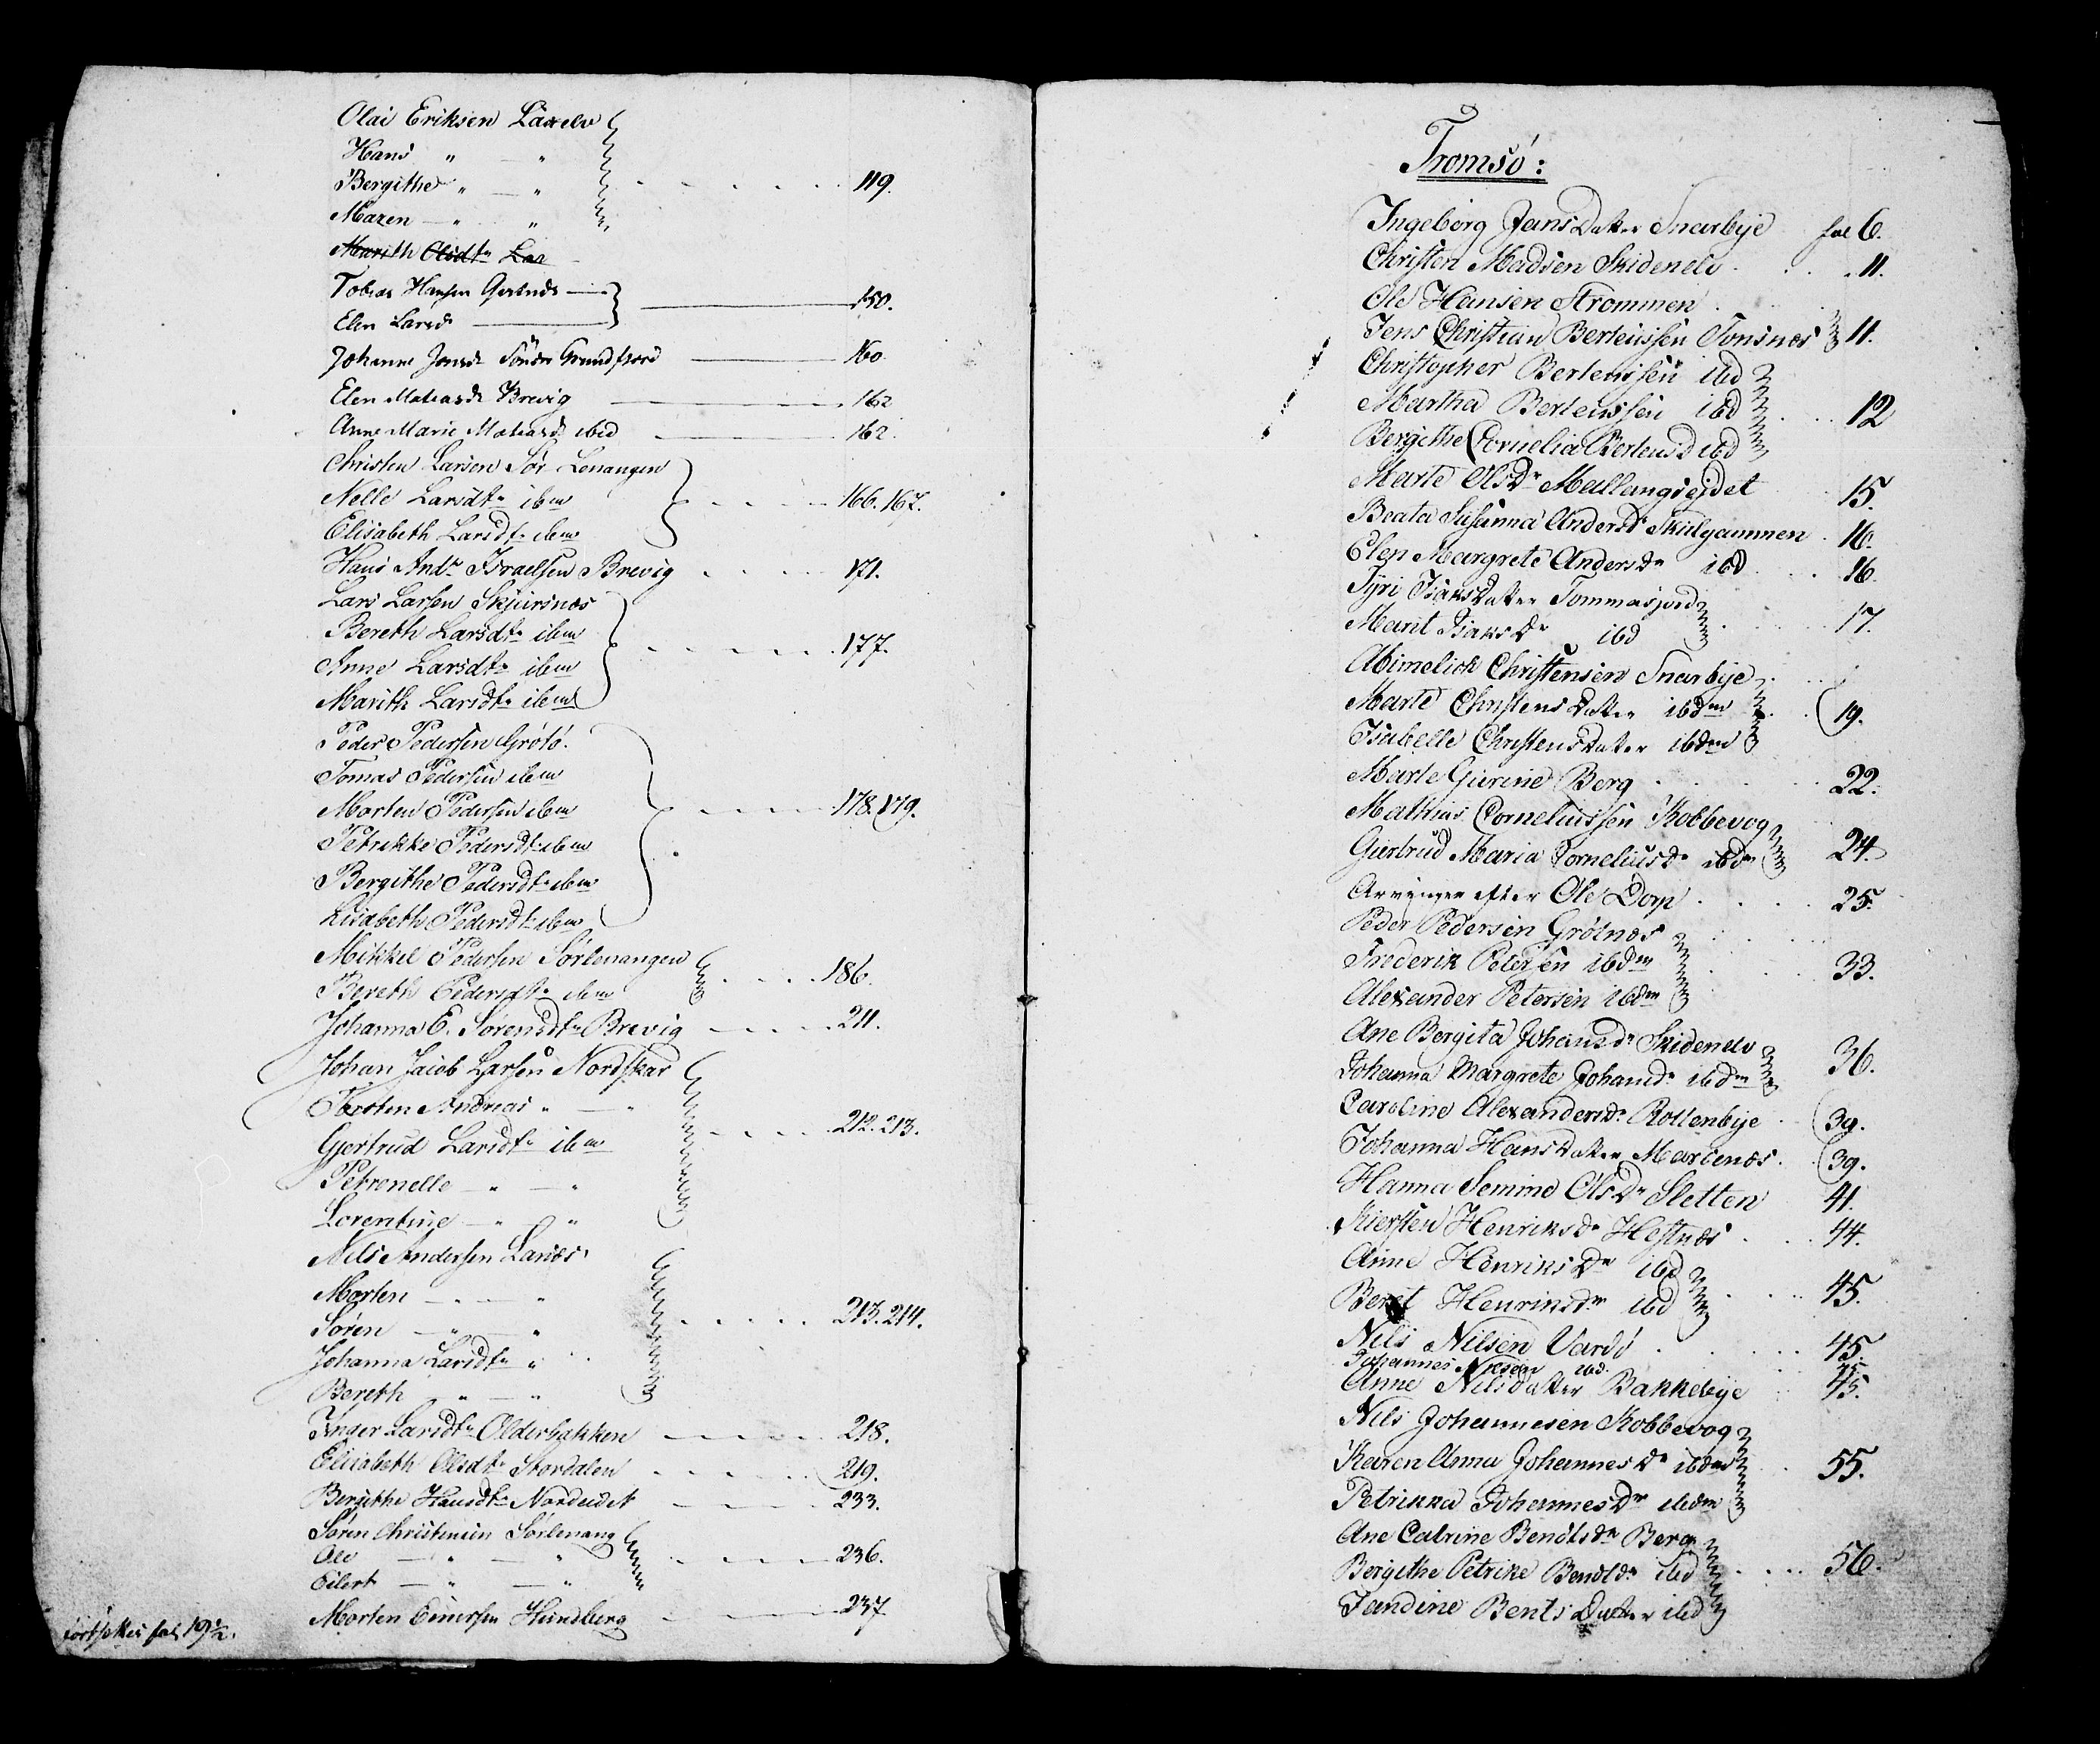 Olai Eriksen Laxelv
Hans " — "
Bergithe " — " 119.
Maren — " — "
Marith Olsdtr Lax
Tobias Hansen Gjøvnds
Elen Larsdr 150.
Johanne Jonsdr Sønder Grundfiord 160
Elen Matiasdr Brevig 162
Anne Marie Matiasdr ibid 162.
Christen Larsen Sør Lenangen
Nelle Larsdtr ibm 166. 167.
Elisabeth Larsdtr ibm
Hans Andr Israelsen Brevig 171.
Lars Larsen Skjursnæs
Bereth Larsdtr ibm 177.
Anne Larsdtr ibm
Marith Larsdtr ibm
Peder Pedersen Grötö.
Tomas Pedersen ibm
Morten Pedersen ibm 178. 179.
Petrikke Pedersdtr ibm
Bergithe Pedersdtr ibm
Lisabeth Pedersdtr ibm
Mikkel Pedersen Sörlenangen
Bereth Pedersdtr ibm 186.
Johanna E. Sørensdtr Brevig 211.
Johan Jacob Larsen Nordskar
Thorsten Andreas " — "
Gjertrud Larsdtr ibm 212. 213.
Petronelle — " — "
Lorentine — " — "
Nils Andersen Lanæs
Morten — " — "
Sören — " — " 213. 214.
Johanna Larsdtr "
Bereth " — "
Inger Larsdtr Olderbakken 218.
Elisabeth Olsdtr Stordalen 219.
Bergithe Hansdtr Nordeidet 233.
Sören Christensen Sørlenang
Ole — " — " 236.
Eilert — " — "
Morten Einersen Hundberg 237
fortsettes fol 19½.
Tromsö:
Ingeborg Jans Datter Snarbye fol 6.
Christen Madsen Skidenelv 11.
Ole Hansen Strommen
Jens Christian Berteussen Tonsnæs 11.
Christopher Berteussen ibd
Martha Berteussen ibd 12
Bergithe Cornelia Berteusd ibd
Marte OlsDr Mallangsejdet 15.
Beata Susanna Andersdr Skulgammen 16.
Elen Margrete Andersdr ibd 16.
Syri Isaks Datter Tommasjord
Marit IsaksDr ibd 17.
Abimelich Christensen Snarbye
Marte Christens Datter ibdm 19.
Isabelle Christens Datter ibdm
Marte Gurine Berg 22.
Mathias Corneliussen Kobbevog
Giertrud Maria Corneliusdr ibdm 24.
Arvinger efter Ole Dorp 25.
Peder Pedersen Grötnæs
Frederik Petersen ibdm 33.
Alexander Petersen ibdm
Ane Bergita Johansdr Skidenelv 36.
Johanna Margrete Johansdr ibdm
Caroline Alexandersdr Rottenbye 39.
Johanna Hans Datter Martenæs. 39.
Hanna Semine OlsDr Sletten 41.
Kiersten Henriksdr Hestnæs 44.
Anne HenriksDr ibd
Beret Henriksdr ibd 45.
Nils Nilsen Vardö 45.
Johannes Nilsen ibd. 45
Anne Nilsdatter Bakkebye 45.
Nils Johannesen Kobbevog
Karen Anna JohannesDr ibdm 55.
Petrikka JohannesDr ibdm
Ane Catrine Bendtsdr Berg
Bergithe Petrike Bendtdr ibd 56.
Jandine Bents Datter ibd